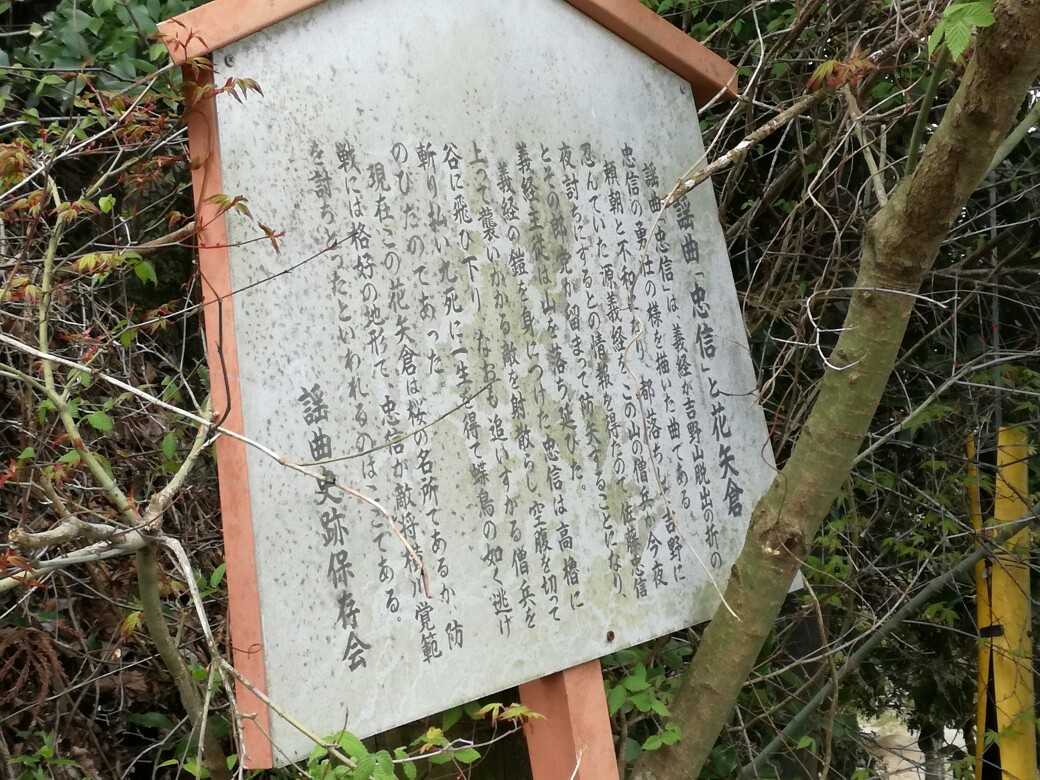 謡曲「忠信」と花矢倉
謡曲「忠信」は、義経が吉野山脱出の折の
忠信の勇壮の様を描いた曲である。
頼朝と不和となり、都落ちし、吉野に
忍んでいた源義経を、この山の僧兵が今夜
夜討ちにするとの情報を得たので、佐藤忠信
とその郎党が留まって防矢することになり、
義経主従は山を落ち延びた。
義経の鎧を身につけた忠信は高櫓に
上って襲いかかる敵を射散らし、空腹を切って
谷に飛び下り、なおも追いすがる僧兵を
斬り払い九死に一生を得て蝶鳥の如く逃げ
のびたのであった。
現在この花矢倉は桜の名所であるが、防
戦には格好の地形で、忠信が敵将横川覚範
を討ちとったといわれるのはここである。
謡曲史跡保存会